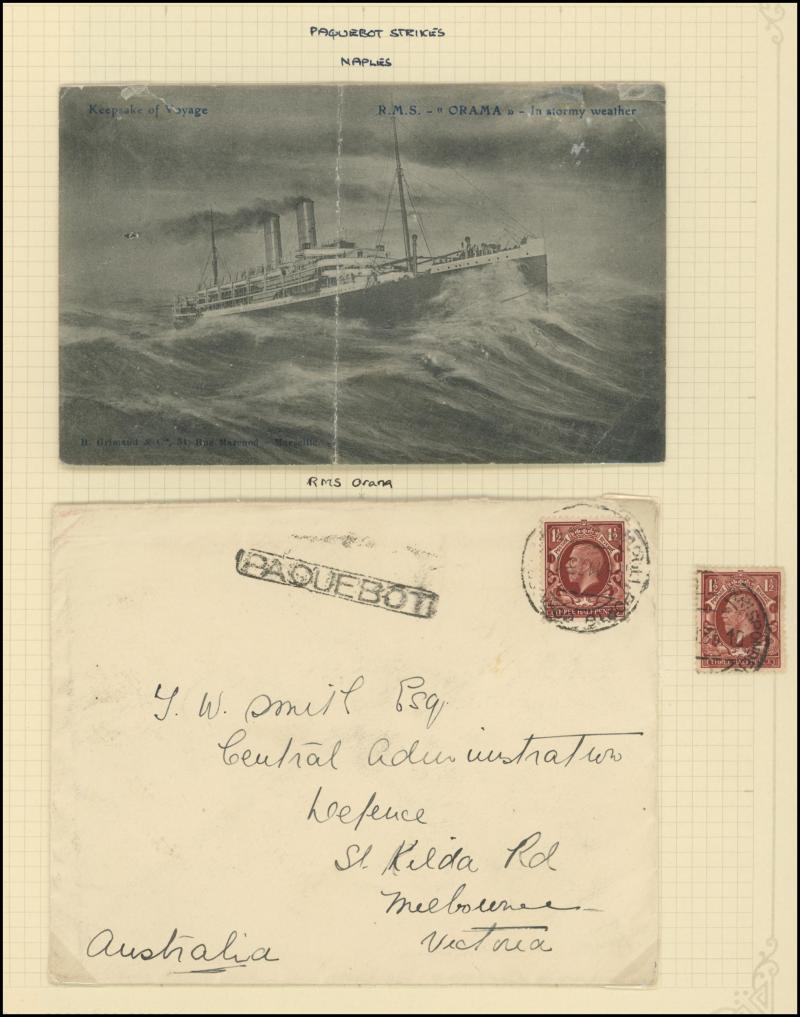 PAQUEBOT STRIKES
NAPLES
Keepsake of Voyage
R.M.S. - « ORAMA » - In stormy weather
B. Grimaud & Cº, 51, Rue Marengo - Marseille
RMS Orama
PAQUEBOT
1½ 1½
THREE HALFPENCE
1½ 1½
THREE HALFPENCE
T. W. Smith Esq.
Central Administration
Defence
St. Kilda Rd
Melbourne
Victoria
Australia